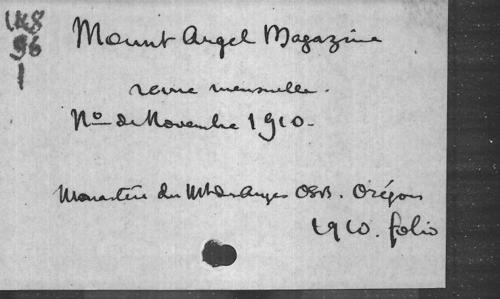 148
96
1
Mount Angel Magazine
revue mensuelle.
No de Novembre 1910-
Monastère du Mt des Anges OSB. Orégon
1910. folio